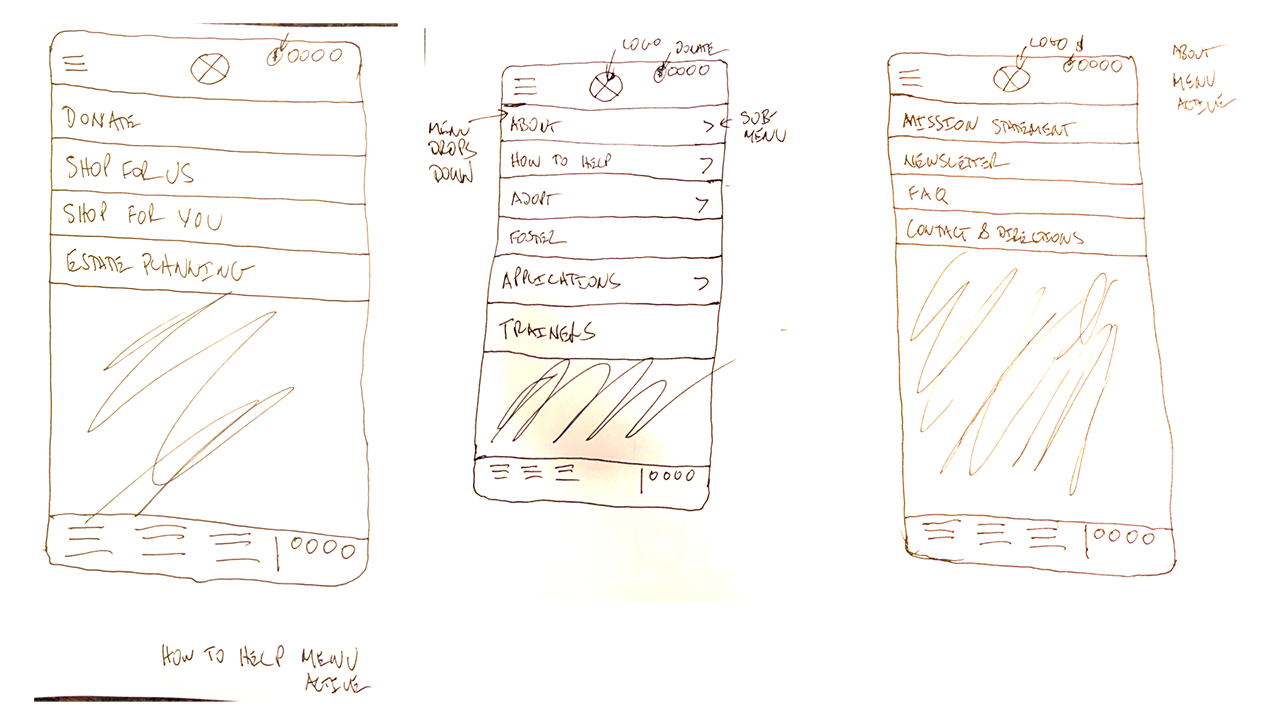 $
DONATE
SHOP FOR US
SHOP FOR YOU
ESTATE PLANNING
HOW TO HELP MENU
ACTIVE
LOGO
$ DONATE
MENU
DROPS
DOWN
ABOUT >
SUB
MENU
HOW TO HELP >
ADOPT >
FOSTER
APPLICATIONS >
TRAINERS
LOGO $
MISSION STATEMENT
NEWSLETTER
FAQ
CONTACT & DIRECTIONS
ABOUT
MENU
ACTIVE